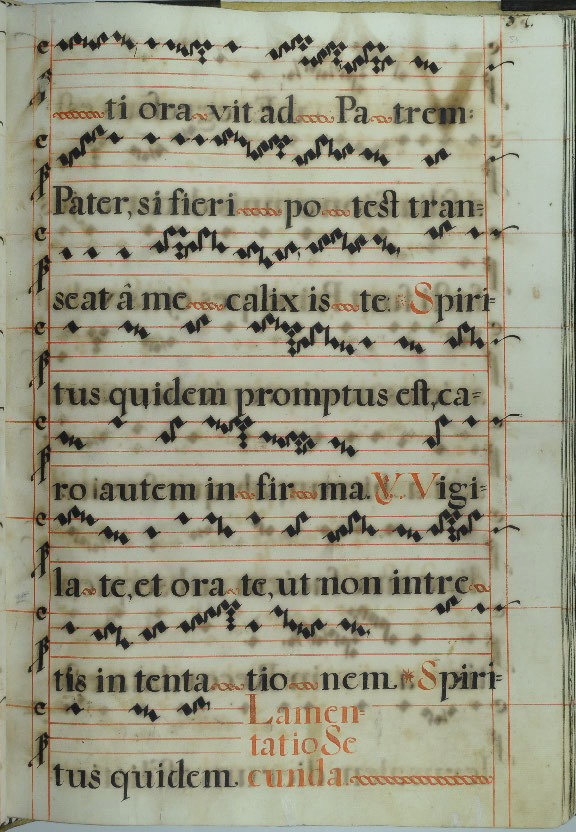 ti ora vit ad Pa trem:
Pater, si fieri po test tran=
seat â me calix is te: Spiri=
tus quidem promptus est, ca=
ro autem in fir ma. V. Vigi=
la te, et ora te, ut non intre
tis in tenta tio nem. * Spiri=
Lamen=
tatio Se
tus quidem. cunda